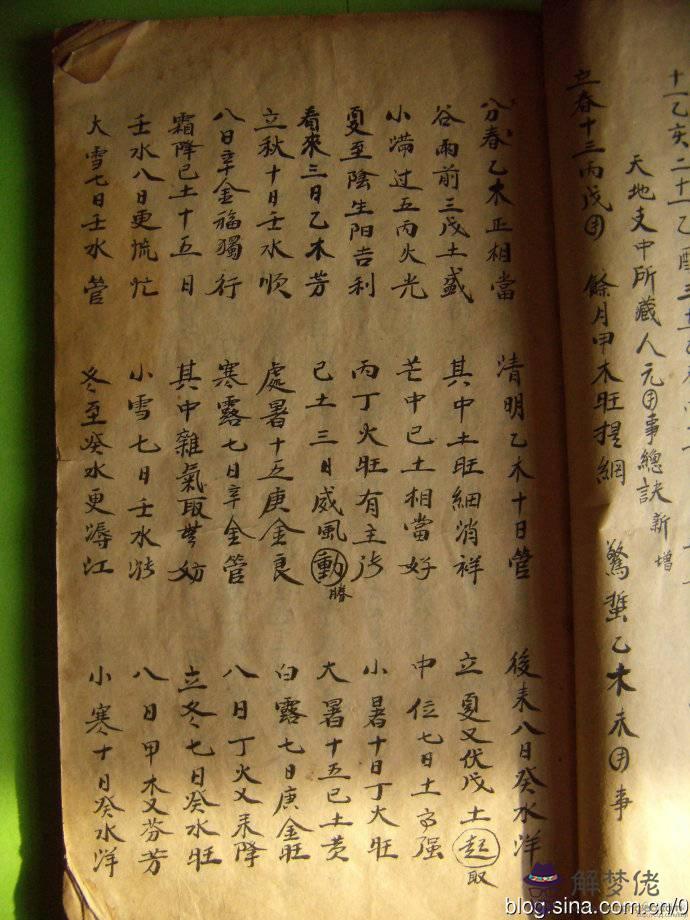 十一乙亥二十一乙酉三十乙
天地支中所藏人元用事總訣 新增
立春十三丙戊用 餘月甲木旺提綱 驚蟄乙木未用事
分春乙木正相當 清明乙木十日管 後来八日癸水洋
谷雨前三戊土盛 其中土旺細消祥 立夏又伏戊土起 取
小滿过五丙火光 芒中己土相當好 中位七日土高强
夏至陰生阳吉利 丙丁火旺有主 小暑十日丁火旺
看來三日乙木芳 己土三日威風動 勝 大暑十五己土黄
立秋十日壬水順 處暑十五庚金良 白露七日庚金旺
八日辛金福獨行 寒露七日辛金管 八日丁火又来降
霜降己土十五日 其中雜氣取無妨 立冬七日癸水旺
壬水八日更慌忙 小雪七日壬水 八日甲木又芬芳
大雪七日壬水管 冬至癸水更江 小寒十日癸水洋
解梦佬
blog.sina.com.cn/0